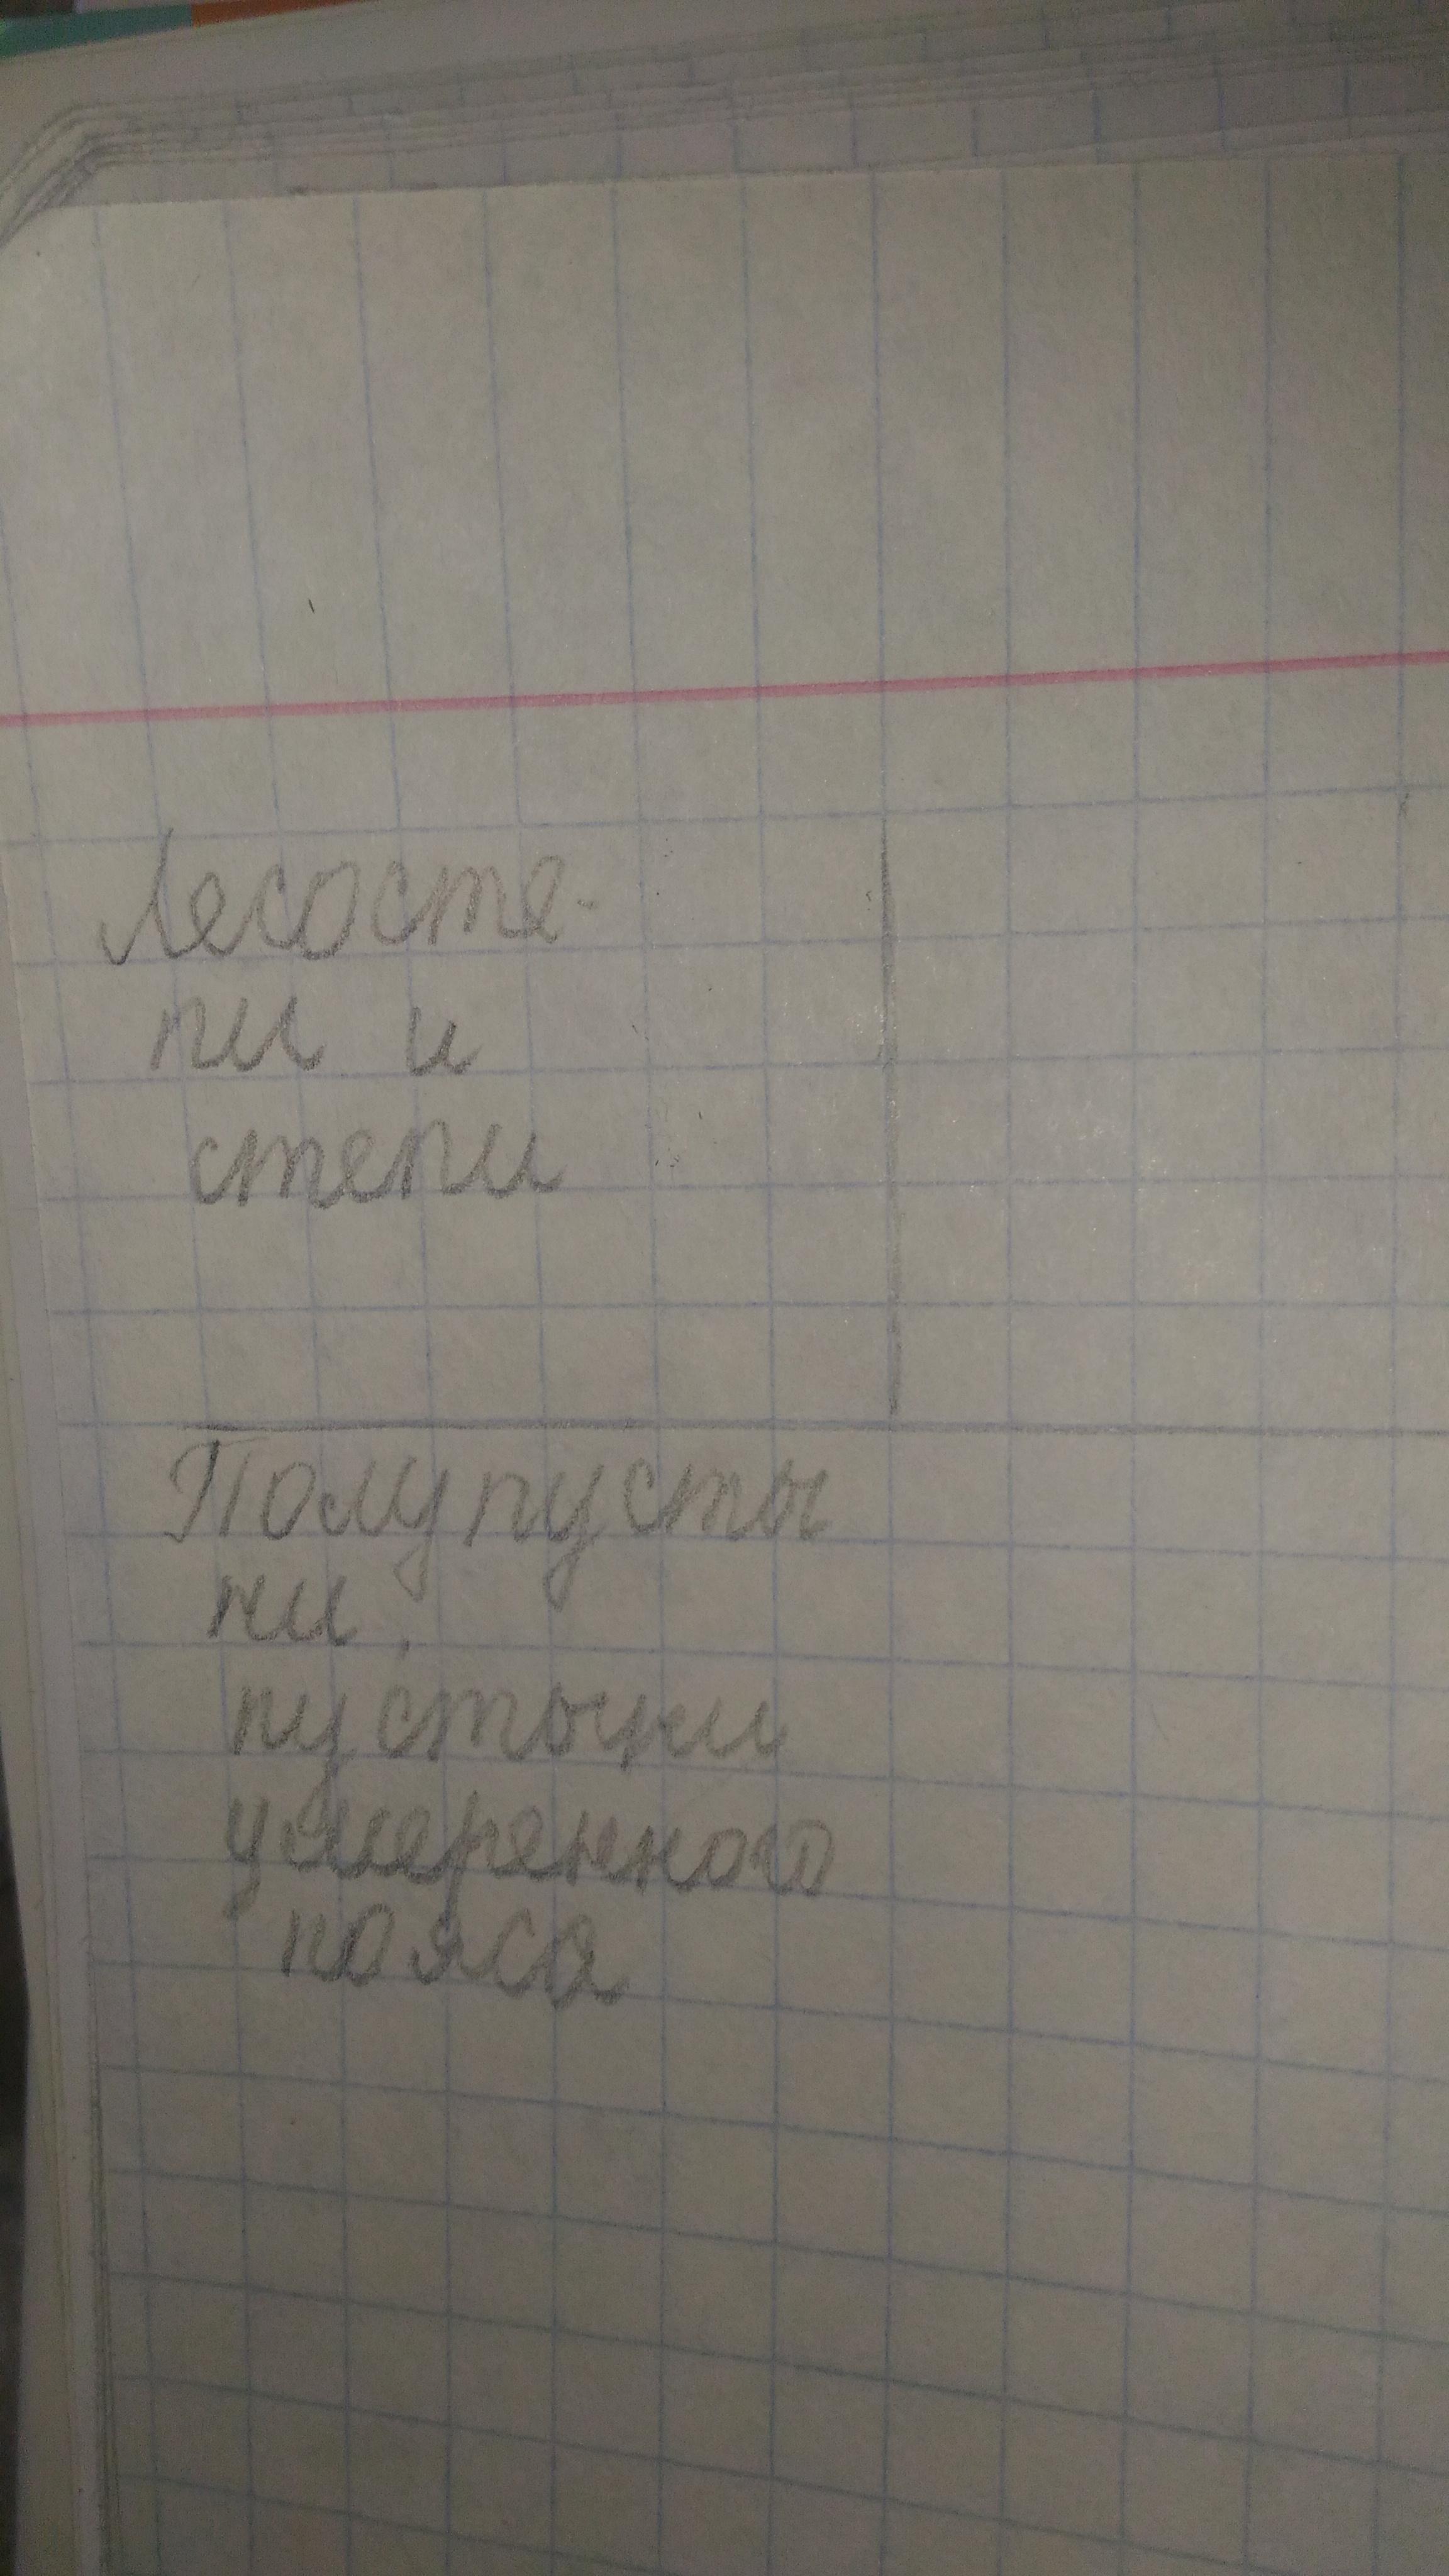 Лесосте-
пи и
степи
Полупусты
ни,
пустыни
умеренного
пояса